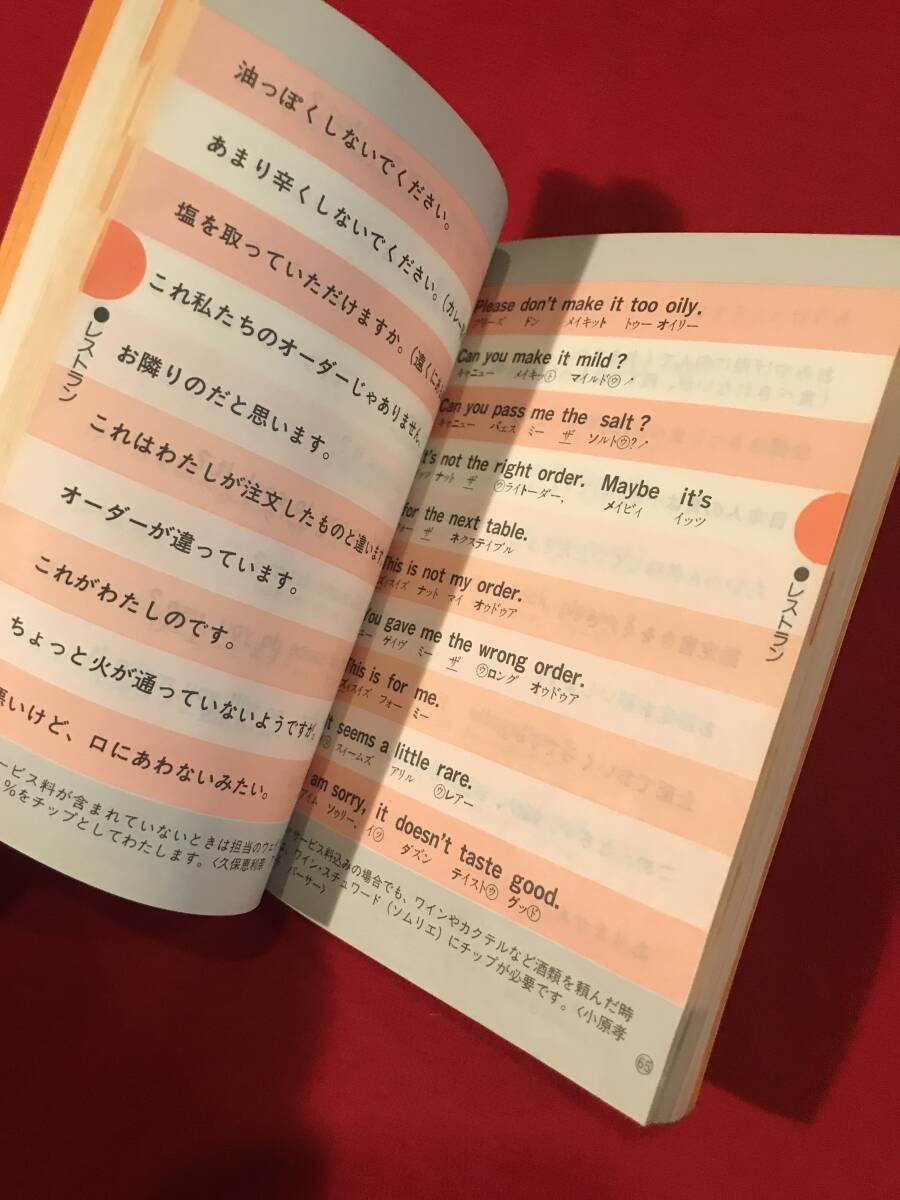 油っぽくしないでください。
あまり辛くしないでください。(カレー
塩を取っていただけますか。(遠くにあ
これ私たちのオーダーじゃありません。
お隣りのだと思います。
これはわたしが注文したものと違います
オーダーが違っています。
これがわたしのです。
ちょっと火が通っていないようですが。
悪いけど、口にあわないみたい。
●レストラン
ービス料が含まれていないときは担当のウェ
%をチップとしてわたします。〈久保恵利奈
Please don't make it too oily.
プリーズ ドン メイキット トゥー オイリー
Can you make it mild?
キャニュー メイキット マイルドゥ↗
Can you pass me the salt?
キャニュー パェス ミー ザ ソルトゥ?↗
t's not the right order. Maybe it's
ナット ザ ゥライトーダー, メイビィ イッツ
for the next table.
フォー ザ ネクステイブル
This is not my order.
ディスイズ ナット マイ オゥドゥア
You gave me the wrong order.
ュー ゲイヴ ミー ザ ゥロング オゥドゥア
This is for me.
ディスイズ フォー ミー
t seems a little rare.
スィームズ アリル ゥレアー
am sorry, it doesn't taste good.
アイム ソゥリー, イッ ダズン テイストゥ グッド
●レストラン
サービス料込みの場合でも、ワインやカクテルなど酒類を頼んだ時
ワイン・スチュワード(ソムリエ)にチップが必要です。〈小原孝
パーサー〉
65